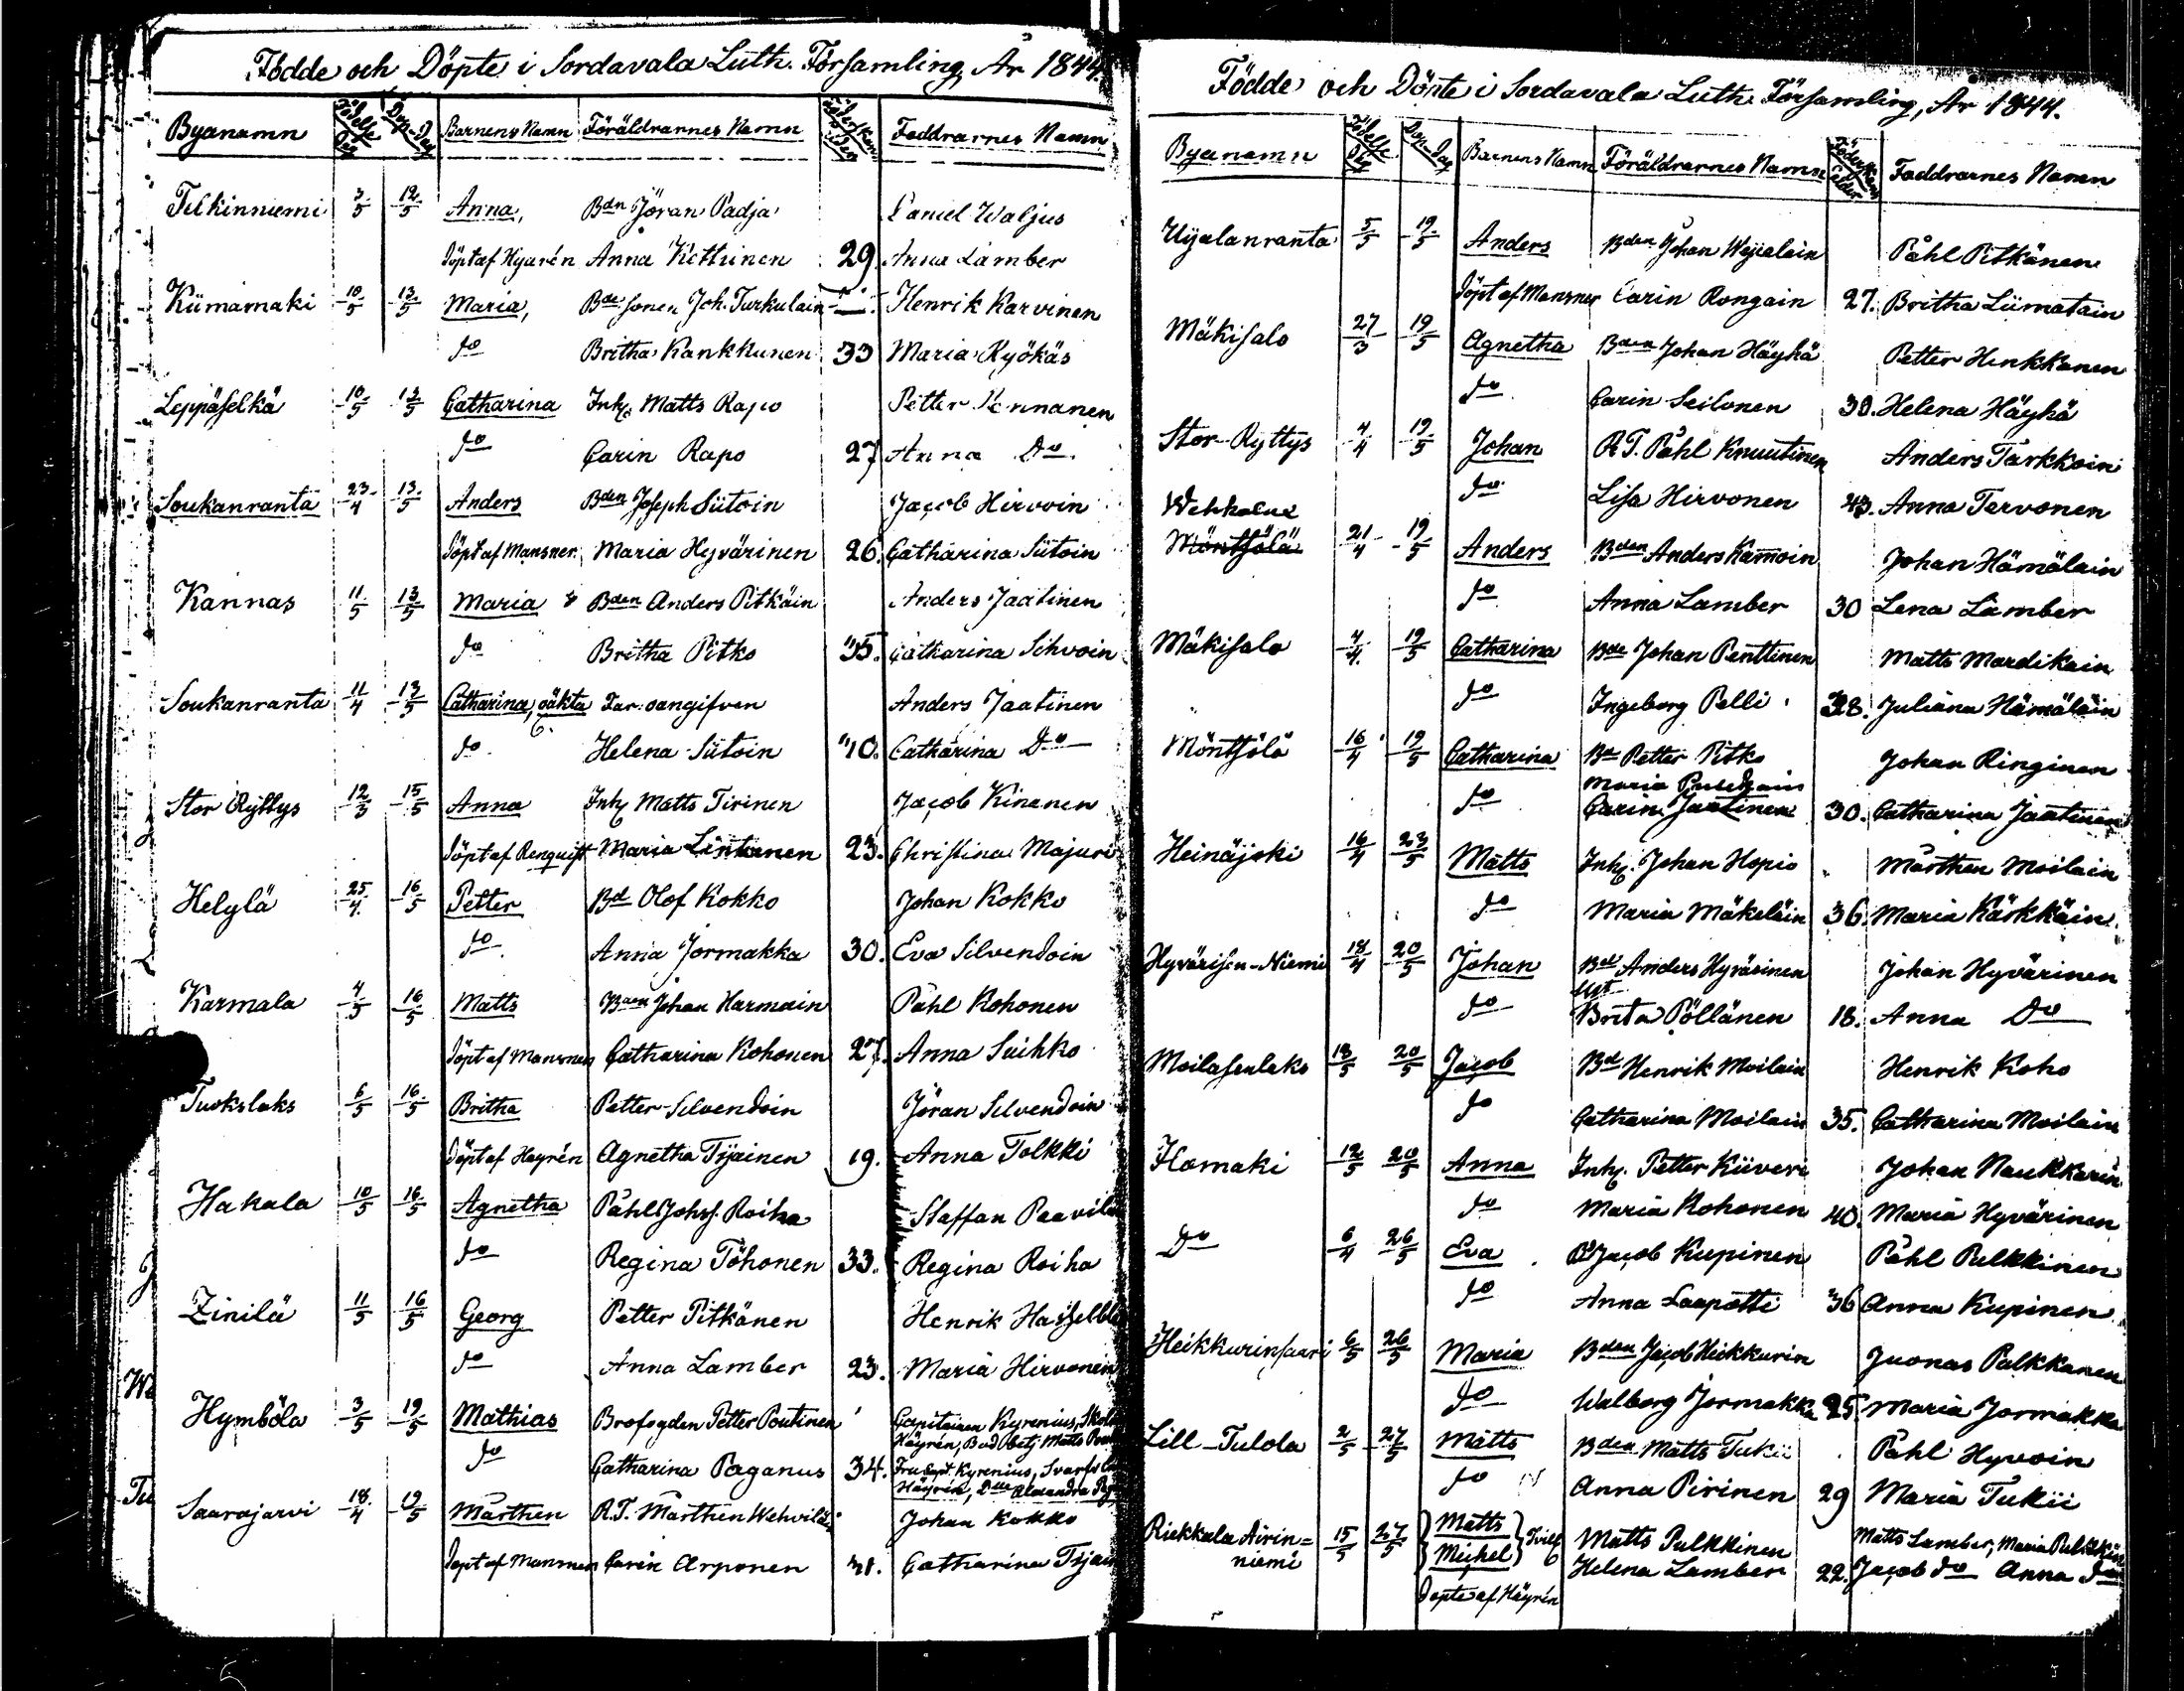 Födde och Döpte i Sordavala Luth. Församling, År 1844.
Byanamn Födelse Dag Dop-Dag Barnens Namn Föräldrarnes Namn Ålder Faddrarnes Namn
3/5 12/5 Anna, Bdn Jöran Padja Daniel Waljus
Döpt af Anna 29. Anna Lamber
10/5 13/5 Maria, Bde sonen Joh. Turkulain Henrik Karvinen
do Britha Kankkunen 33 Maria Kyökäs
Leppäselkä 10/5 13/5 Catharina Inh. Matts Rapo Petter Pennanen
do Carin Rapo 27 Anna Do
Soukanranta 23/4 13/5 Anders Bden Joseph Siitoin Jacob Hirvoin
Döpt af Mansner Maria Hyvärinen 26. Catharina Siitoin
Kannas 11/5 13/5 Maria Bden Anders Pitkäin Anders Jaatinen
do Britha Pitko 35. Catharina Sihvoin
Soukanranta 11/4 13/5 Catharina, oäkta Far: oangifven Anders Jaatinen
do Helena Siitoin 40. Catharina Do
Stor Ryttys 12/3 15/5 Anna Inh. Matts Tirinen Jacob Kinanen
Döpt af Renquist Maria Lintunen 23. Christina Majuri
Helylä 25/4 16/5 Petter Bd Olof Kokko Johan Kokko
do Anna Jormakka 30. Eva Silvendoin
Karmala 4/5 16/5 Matts Bden Johan Harmain Påhl Kohonen
Döpt af Mansner Catharina Kohonen 27. Anna Suihko
Tuokslaks 6/5 16/5 Britha Petter Silvendoin Jöran Silvendoin
Döpt af Hayrén Agnetha Tijainen 19. Anna Tolkki
Hakala 10/5 16/5 Agnetha Påhl Johss. Roiha Staffan
do Regina Töhonen 33. Regina Roiha
Zinilä 11/5 16/5 Georg Petter Pitkänen Henrik
do Anna Lamber 23. Maria Hirvonen
Hymböla 3/5 19/5 Mathias Brofogden Petter Poutinen Capitainen Kyrenius,
Häyrén, Matts
do Catharina Paganus 34. Fru Capt. Kyrenius,
Häyrén, Dlle Alexandra
Saarajarvi 18/4 19/5 Mårthen R.T. Mårthen Johan Kokko
Döpt af Mansner Carin Arponen 31. Catharina
Födde och Döpte i Sordavala Luth. Församling, År 1844.
Byanamn Födelse Dag Dop-Dag Barnens Namn Föräldrarnes Namn Ålder Faddrarnes Namn
Uijalanranta 5/5 19/5 Anders Bden Johan Wejialain Påhl Pitkänen
Döpt af Mansner Carin Rongain 27. Britha Liimatain
Mäkisalo 27/3 19/5 Agnetha Bden Johan Häyhä Petter Henkkanen
do Carin Seilonen 30. Helena Häyhä
Stor-Ryttys 4/4 19/5 Johan R.T. Påhl Knuutinen Anders Tarkkoin
do Lisa Hirvonen 43. Anna Tervonen
Möntsölä 21/4 19/5 Anders Bden Anders Kamoin Johan Hämäläin
do Anna Lamber 30 Lena Lamber
Mäkisalo 4/4 19/5 Catharina Bde Johan Penttinen Matts Mardikain
do Ingeborg Pelli 38. Juliana Hämäläin
Möntsölä 16/4 19/5 Catharina Bd Petter Pitko Johan Ringinen
Maria
do Carin Jaatinen 30. Catharina Jaatinen
Heinäjoki 16/4 23/5 Matts Inh. Johan Hopio Mårthen Moilain
do Maria Mäkeläin 36. Maria Kärkkäin
Hyvärisen-Niemi 18/4 20/5 Johan Bd Anders Hyvärinen Johan Hyvärinen
do Brita Pöllänen 18. Anna Do
Moilasenlaks 18/5 20/5 Jacob Bd Henrik Moilain Henrik Koho
do Catharina Moilain 35. Catharina Moilain
Hamaki 12/5 20/5 Anna Inh. Petter Kiiveri Johan Naukkarin
do Maria Kohonen 40. Maria Hyvärinen
Do 6/4 26/5 Eva Bd Jacob Kupinen Påhl Pulkkinen
do Anna Laapotti 36 Anna Kupinen
Heikkurinsaari 6/5 26/5 Maria Bden Jacob Heikkurin Juonas Pulkkanen
do Walborg Jormakka 25. Maria Jormakka
Lill-Tulola 2/5 27/5 Matts Bden Matts Tukii Påhl Hyvoin
do Anna Pirinen 29 Maria Tukii
Riekkala Airin= 15/5 27/5 Matts Matts Pulkkinen Matts Lamber, Maria Pulkkin
niemi Michel Tvill. Helena Lamber 22. Jacob do Anna do
Döpte af Häyrén